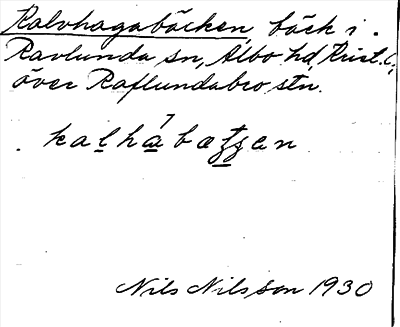 Kalvhagabäcken, bäck i
Ravlunda sn, Albo hd, Krist. l.,
över Raflundabro stn.
kalhabætsen
Nils Nilsson 1930